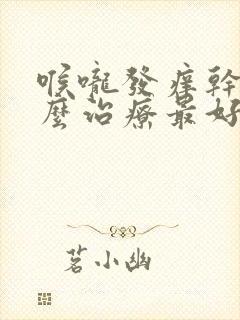 喉嚨發癢幹
麼治療最好
茗小幽